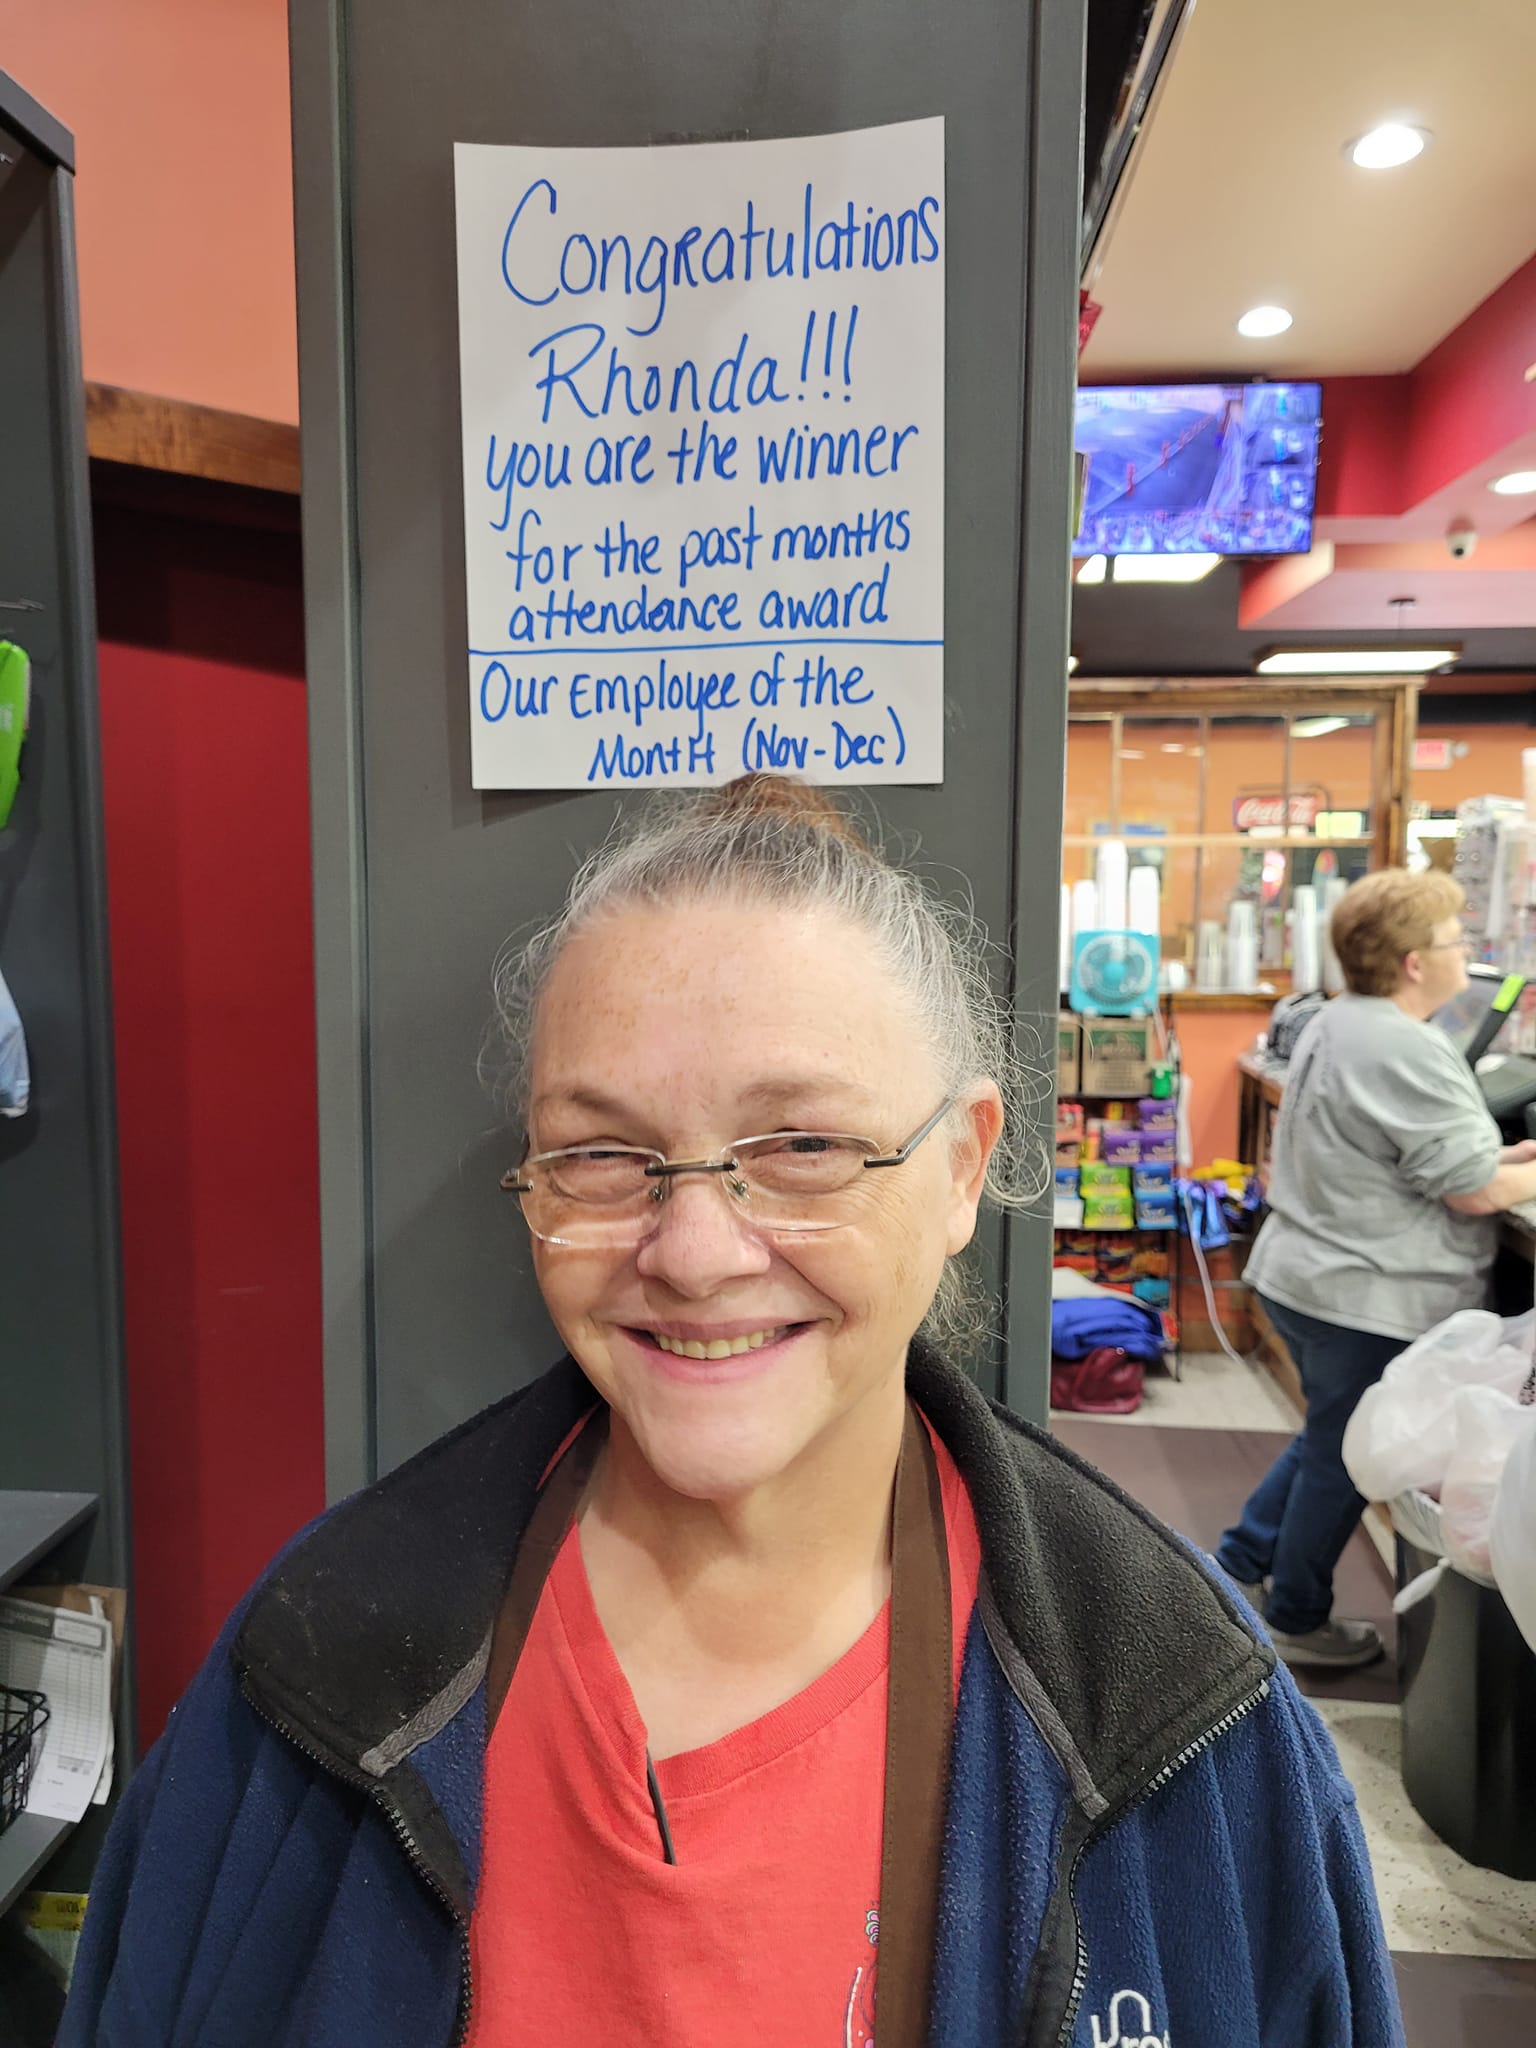 Congratulations
Rhonda!!!
you are the winner
for the past months
attendance award
Our Employee of the
Month (Nov-Dec)
Coca-Cola